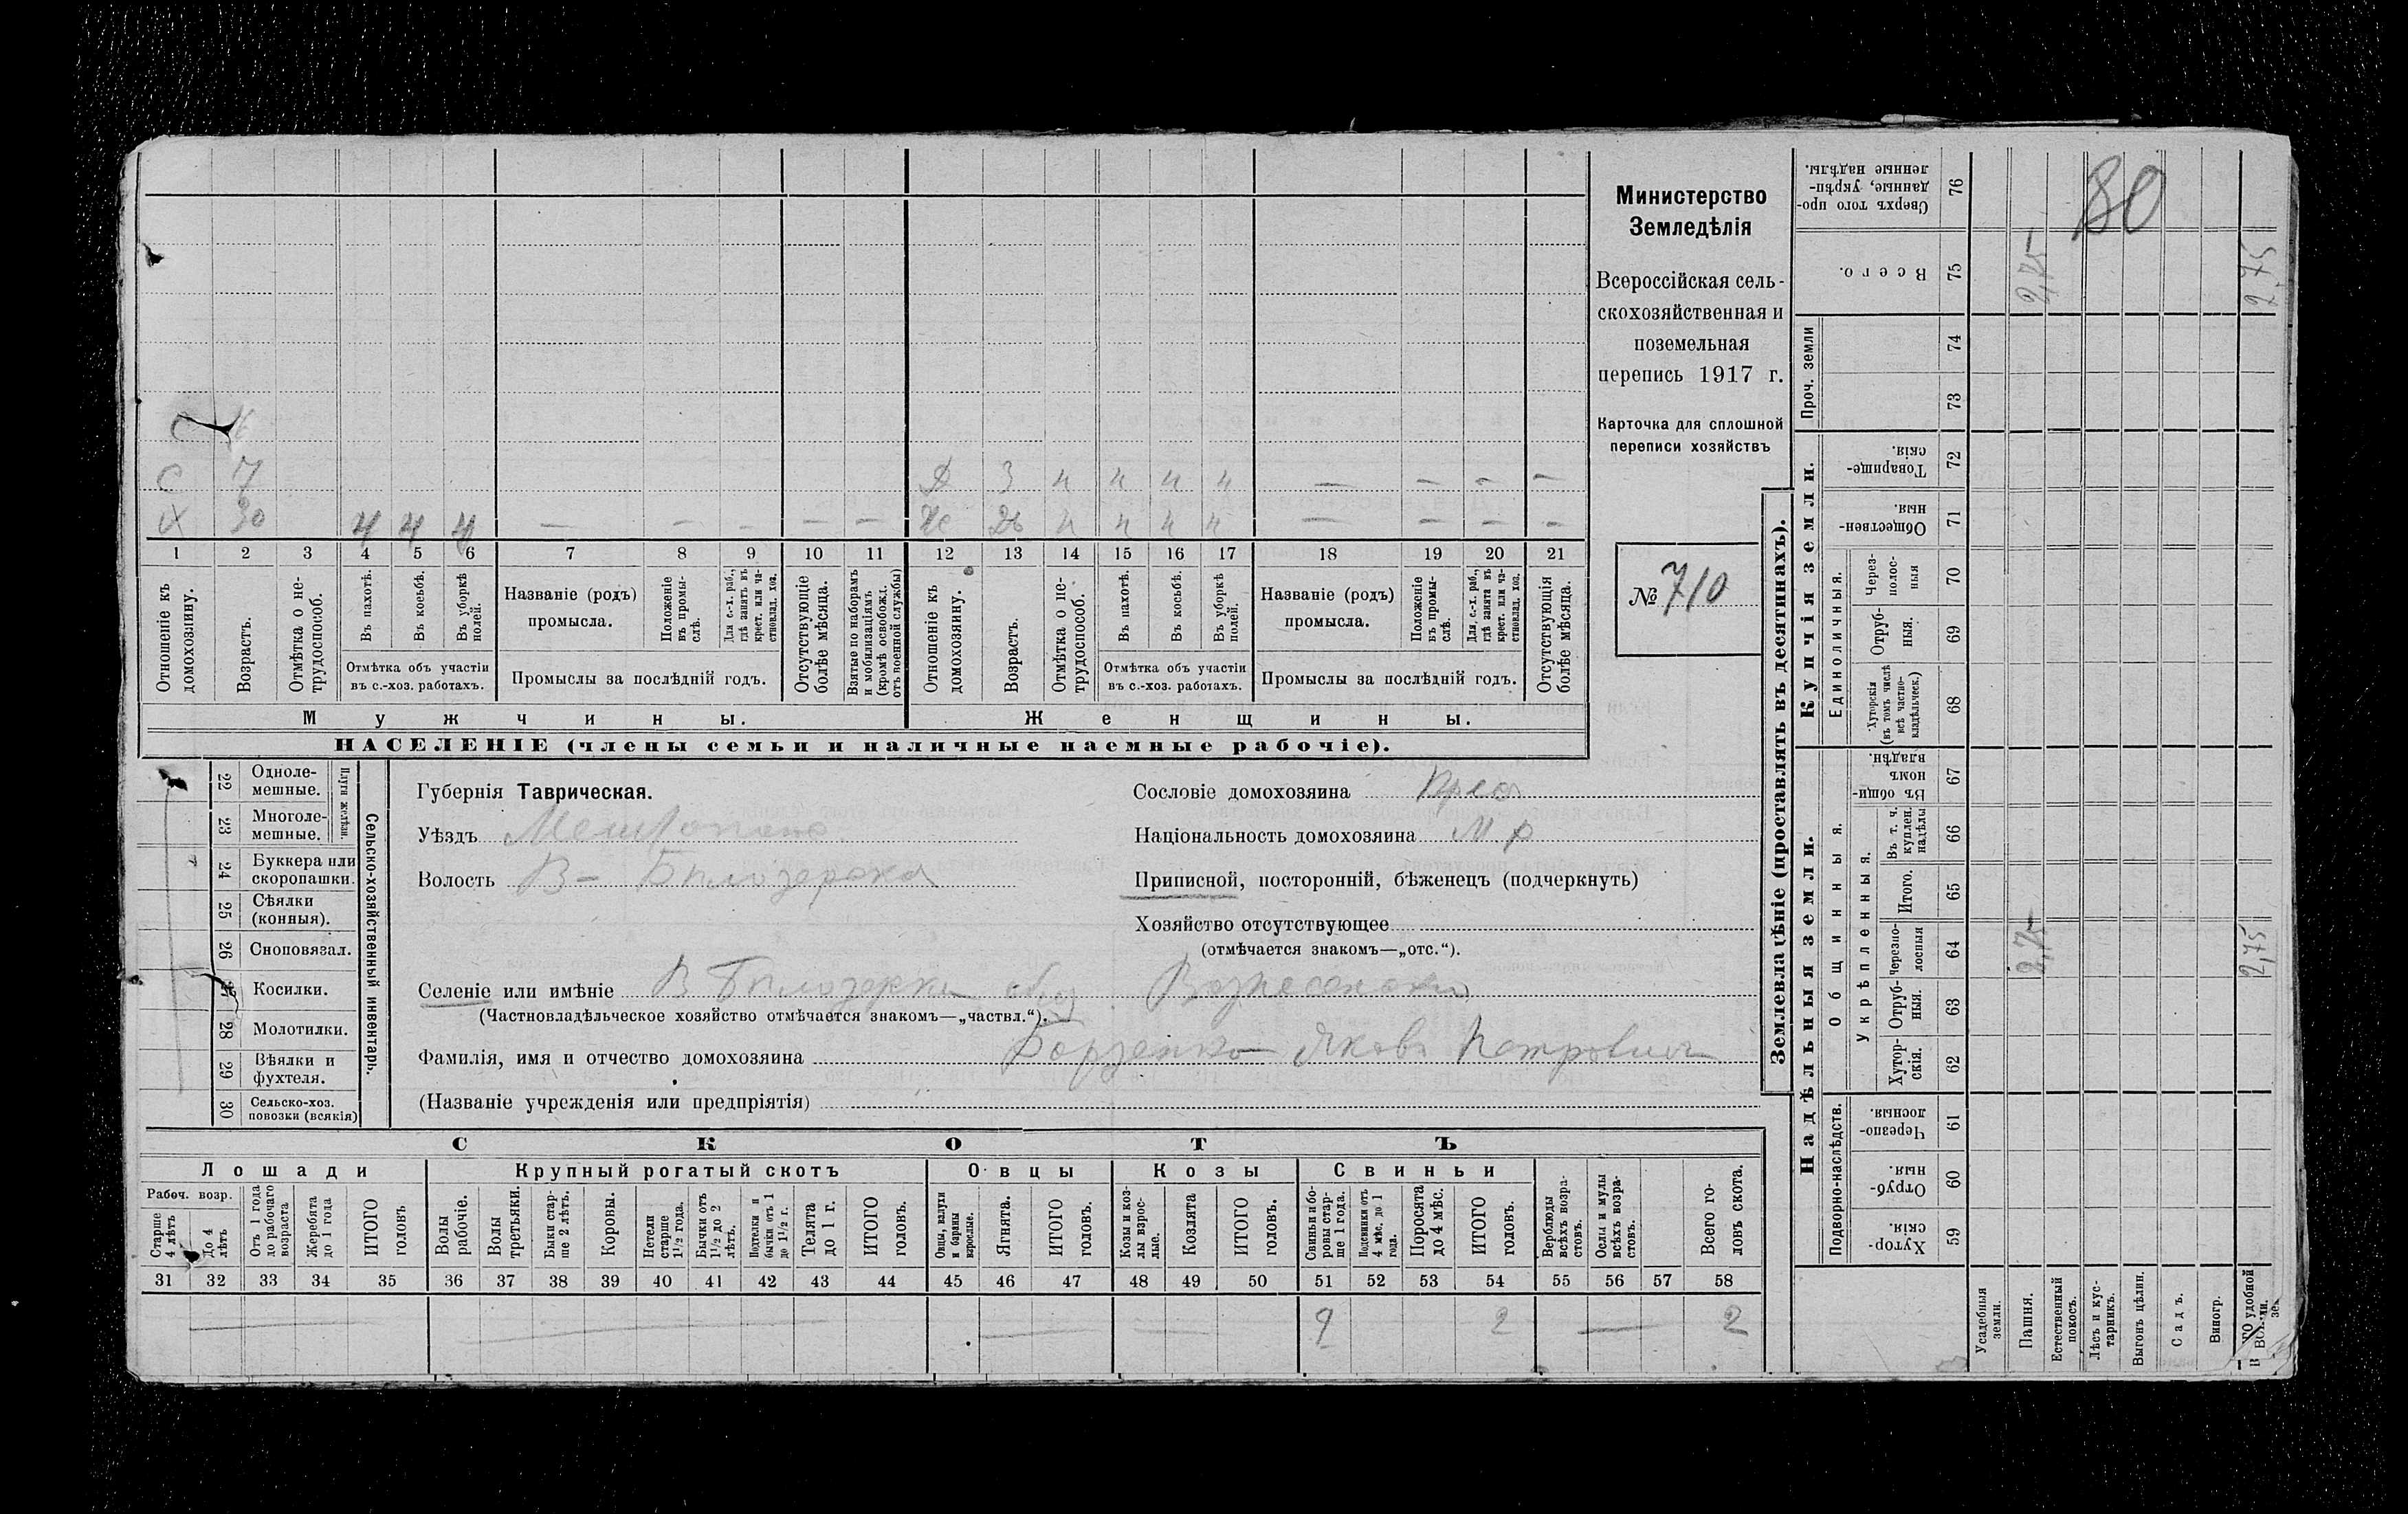 80
Министерство
Земледѣлія
Всероссійская сель-
скохозяйственная и
поземельная
перепись 1917 г.
Карточка для сплошной
переписи хозяйствъ
№ 710
С
С 7 Д 3 н н н н — — — —
Х 30 ч ч ч — — — — — Ж 26 н н н н — — — —
1 2 3 4 5 6 7 8 9 10 11 12 13 14 15 16 17 18 19 20 21
Отношеніе къ домохозяину.
Возрастъ.
Отмѣтка о не-трудоспособ.
Въ пахотѣ.
Въ косьбѣ.
Въ уборкѣ полей.
Отмѣтка объ участіи
въ с.-хоз. работахъ.
Названіе (родъ)
промысла.
Положеніе въ промы-слѣ.
Для с.-х. раб., гдѣ занятъ въ крест. или ча-стновлад. хоз.
Промыслы за послѣдній годъ.
Отсутствующіе болѣе мѣсяца.
Взятые по наборамъ и мобилизаціямъ (кромѣ освобожд. отъ военной службы)
Отношеніе къ домохозяину.
Возрастъ.
Отмѣтка о не-трудоспособ.
Въ пахотѣ.
Въ косьбѣ.
Въ уборкѣ полей.
Отмѣтка объ участіи
въ с.-хоз. работахъ.
Названіе (родъ)
промысла.
Положеніе въ промы-слѣ.
Для с.-х. раб., гдѣ занята въ крест. или ча-стновлад. хоз.
Промыслы за послѣдній годъ.
Отсутствующія болѣе мѣсяца.
Мужчины. Женщины.
НАСЕЛЕНІЕ (члены семьи и наличные наемные рабочіе).
Сельско-хозяйственный инвентарь.
Плуги желѣзн.
22 Одноле-мешные.
23 Многоле-мешные.
24 Буккера или скоропашки.
25 Сѣялки (конныя).
26 Сноповязал.
27 Косилки.
28 Молотилки.
29 Вѣялки и фухтеля.
30 Сельско-хоз. повозки (всякія)
Губернія Таврическая.
Уѣздъ
Волость В- Бѣлозерска
Селеніе или имѣніе В Бѣлозерки общ. Вознесенски
(Частновладѣльческое хозяйство отмѣчается знакомъ—„частвл.“).
Фамилія, имя и отчество домохозяина Борзенко Яковъ Петровичъ
(Названіе учрежденія или предпріятія)
Сословіе домохозяина Крес
Національность домохозяина М.р
Приписной, посторонній, бѣженецъ (подчеркнуть)
Хозяйство отсутствующее
(отмѣчается знакомъ—„отс.“).
СКОТЪ
Лошади Крупный рогатый скотъ Овцы Козы Свиньи
Рабоч. возр.
Старше 4 лѣтъ
До 4 лѣтъ
Отъ 1 года до рабочаго возраста
Жеребята до 1 года
ИТОГО головъ
Волы рабочіе.
Волы третьяки.
Быки стар-ше 2 лѣтъ.
Коровы.
Нетели старше 1½ года.
Бычки отъ 1½ до 2 лѣтъ.
Подтелки и бычки отъ 1 до 1½ г.
Телята до 1 г.
ИТОГО головъ.
Овцы, валухи и бараны взрослые.
Ягнята.
ИТОГО головъ.
Козы и коз-лы взрос-лые.
Козлята
ИТОГО головъ.
Свиньи и бо-ровы стар-ше 1 года.
Подсвинки отъ 4 мѣс. до 1 года.
Поросята до 4 мѣс.
ИТОГО головъ.
Верблюды всѣхъ возра-стовъ.
Ослы и мулы всѣхъ возра-стовъ.
Всего го-ловъ скота.
31 32 33 34 35 36 37 38 39 40 41 42 43 44 45 46 47 48 49 50 51 52 53 54 55 56 57 58
2 2 — 2
Землевладѣніе (проставлять въ десятинахъ).
Надѣльныя земли.
Подворно-наслѣдств.
59 Хутор-скія.
60 Отруб-ныя.
61 Черезпо-лосныя.
Общинныя.
Укрѣпленныя.
62 Хутор-скія.
63 Отруб-ныя.
64 Черезпо-лосныя 2,75 2,75
65 Итого.
66 Въ т. ч. куплен. надѣлы
67 Въ общи-номъ владѣн.
Купчія земли.
Единоличныя.
68 Хуторскія (въ томъ числѣ всѣ частно-владѣльческ.)
69 Отруб-ныя.
70 Через-полос-ныя
71 Обществен-ныя.
72 Товарище-скія.
Проч. земли
73
74
75 Всего. 2,75 2,75
76 Сверхъ того про-данные, укрѣп-ленные надѣлы.
Усадебныя земли.
Пашня.
Естественный покосъ.
Лѣсъ и кус-тарникъ.
Выгонъ цѣлин.
Садъ.
Виногр.
удобной